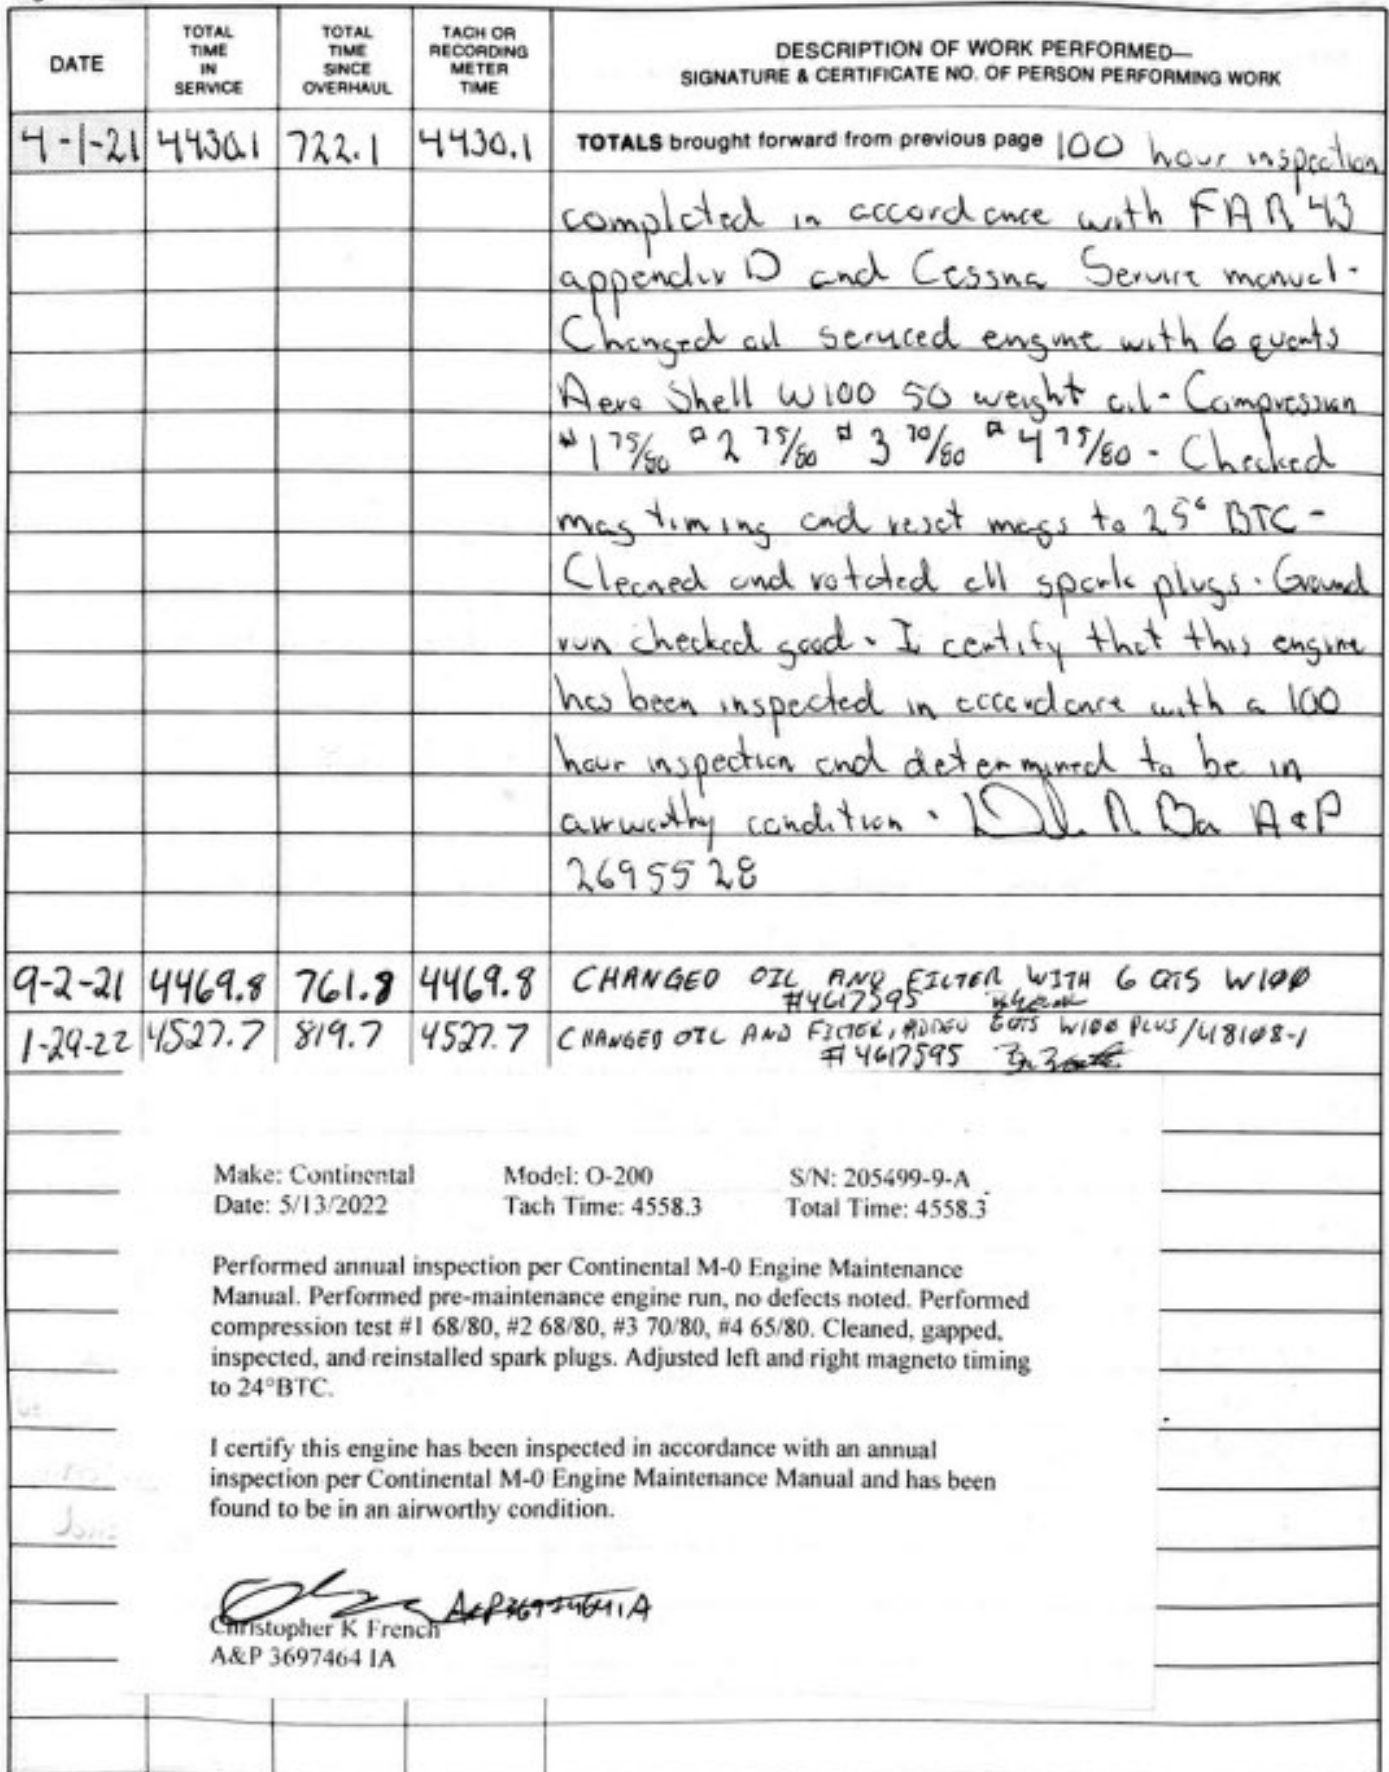 DATE
TOTAL TIME IN SERVICE
TOTAL TIME SINCE OVERHAUL
TACH OR RECORDING METER TIME
DESCRIPTION OF WORK PERFORMED—
SIGNATURE & CERTIFICATE NO. OF PERSON PERFORMING WORK
4-1-21 4430.1 722.1 4430.1 TOTALS brought forward from previous page 100 hour inspection
completed in accordance with FAR 43
appendix D and Cessna Service manual-
Changed oil serviced engine with 6 quarts
Aero Shell W100 50 weight oil - Compression
#1 75/80 #2 75/80 #3 70/80 #4 75/80 - Checked
mag timing and reset mags to 25° BTC -
Cleaned and rotated all spark plugs. Ground
run checked good. I certify that this engine
has been inspected in accordance with a 100
hour inspection and determined to be in
airworthy condition. A&P
2695528
9-2-21 4469.8 761.8 4469.8 CHANGED OIL AND FILTER WITH 6 QTS W100
#4617595
1-29-22 4527.7 819.7 4527.7 CHANGED OIL AND FILTER, ADDED 6QTS W100 PLUS/48108-1
#4617595
Make: Continental Model: O-200 S/N: 205499-9-A
Date: 5/13/2022 Tach Time: 4558.3 Total Time: 4558.3
Performed annual inspection per Continental M-0 Engine Maintenance
Manual. Performed pre-maintenance engine run, no defects noted. Performed
compression test #1 68/80, #2 68/80, #3 70/80, #4 65/80. Cleaned, gapped,
inspected, and reinstalled spark plugs. Adjusted left and right magneto timing
to 24°BTC.
I certify this engine has been inspected in accordance with an annual
inspection per Continental M-0 Engine Maintenance Manual and has been
found to be in an airworthy condition.
Christopher K French
A&P 3697464 IA